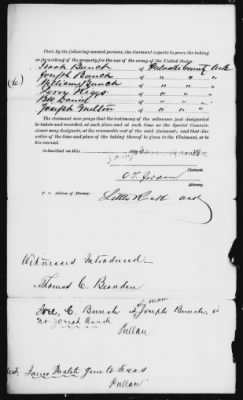 That, by the following-named persons, the claimant expects to prove the taking
or furnishing of the property for the use of the army of the United States:
Isaac Bunch of Pulaski County Ark
Joseph Bunch of " " "
William Bunch of " " "
Jerry Riggs of " " "
Bill Daniel of " " "
Joseph Milton of " " "
The claimant now prays that the testimony of the witnesses just designated be
taken and recorded, at such place and at such time as the Special Commis-
sioner may designate, at the reasonable cost of the said claimant; and that due
notice of the time and place of the taking thereof be given to the Claimant, or to
his counsel.
Submitted on this
Claimant.
Attorney.
P. O. Address of Attorney:
Little Rock Ark
Witnesses Introduced.
Thomas C.
C. Bunch
Joseph Bunch, is
no Joseph Bunch
Pullan
gone to Texas
Pullan